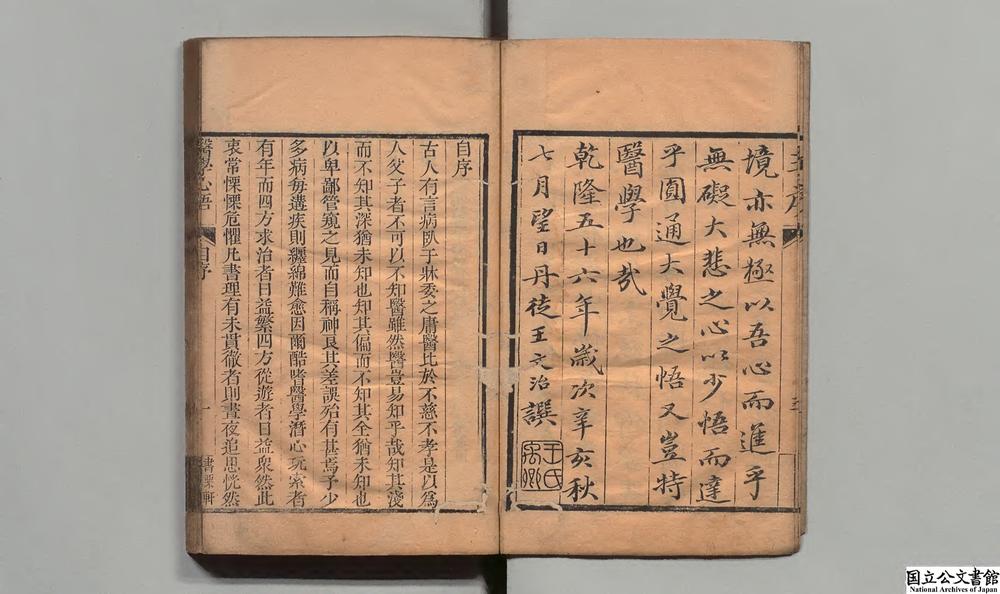 境亦無極以吾心而進乎
無礙大悲之心以少悟而達
乎圓通大覺之悟又豈特
醫學也哉
乾隆五十六年歲次辛亥秋
七月望日丹徒王文治譔
王氏禹卿
自序
古人有言病臥于牀委之庸醫比於不慈不孝是以為
人父子者不可以不知醫雖然醫豈易知乎哉知其淺
而不知其深猶未知也知其偏而不知其全猶未知也
以卑鄙管窺之見而自稱神良其差誤殆有甚焉予少
多病每遘疾則纏綿難愈因爾酷嗜醫學潛心玩索者
有年而四方求治者日益繁四方從遊者日益衆然此
衷常慄慄危懼凡書理有未貫徹者則晝夜追思恍然
醫學心悟
自序
一
書業軒
国立公文書館
National Archives of Japan